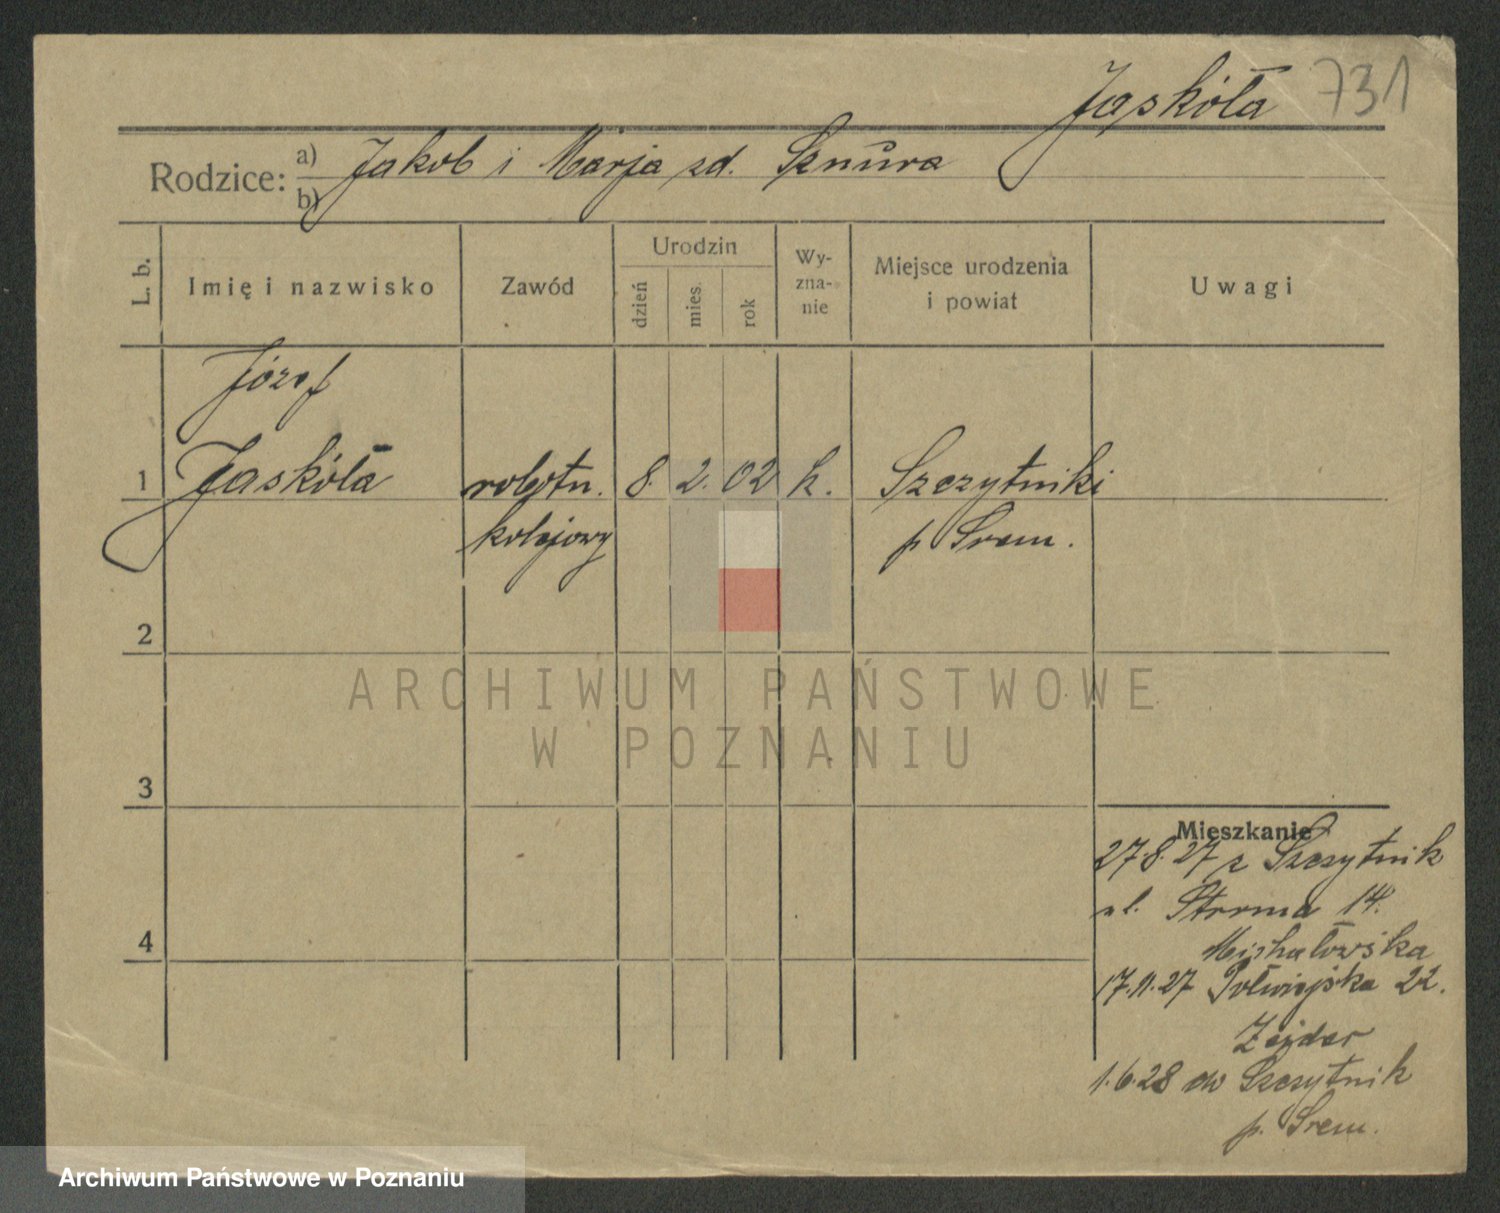 Jaskóła 731
Rodzice: a) Jakob i Marja zd. Sznura
b)
L. b.
Imię i nazwisko
Zawód
Urodzin
dzień
mies.
rok
Wy-
zna-
nie
Miejsce urodzenia
i powiat
Uwagi
Józef
1 Jaskóła robotn. 8. 2. 02 k. Szczytniki
kolejowy p Śrem.
2
3
4
Mieszkanie
27.8.27 z Szczytnik
ul. Stroma 14.
Michałowska
17.11.27 Półwiejska 22.
Zejder
1.6.28 do Szczytnik
p. Śrem.
ARCHIWUM PAŃSTWOWE
W POZNANIU
Archiwum Państwowe w Poznaniu